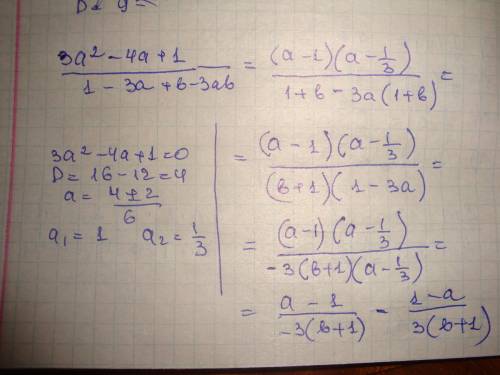 (3a² - 4a + 1) / (1 - 3a + в - 3ав) = (a - 1)(a - 1/3) / (1 + в - 3a(1 + в)) =
3a² - 4a + 1 = 0
D = 16 - 12 = 4
a = (4 ± 2) / 6
a₁ = 1 a₂ = 1/3
= (a - 1)(a - 1/3) / ((в + 1)(1 - 3a)) =
= (a - 1)(a - 1/3) / (-3(в + 1)(a - 1/3)) =
= (a - 1) / (-3(в + 1)) = (1 - a) / (3(в + 1))